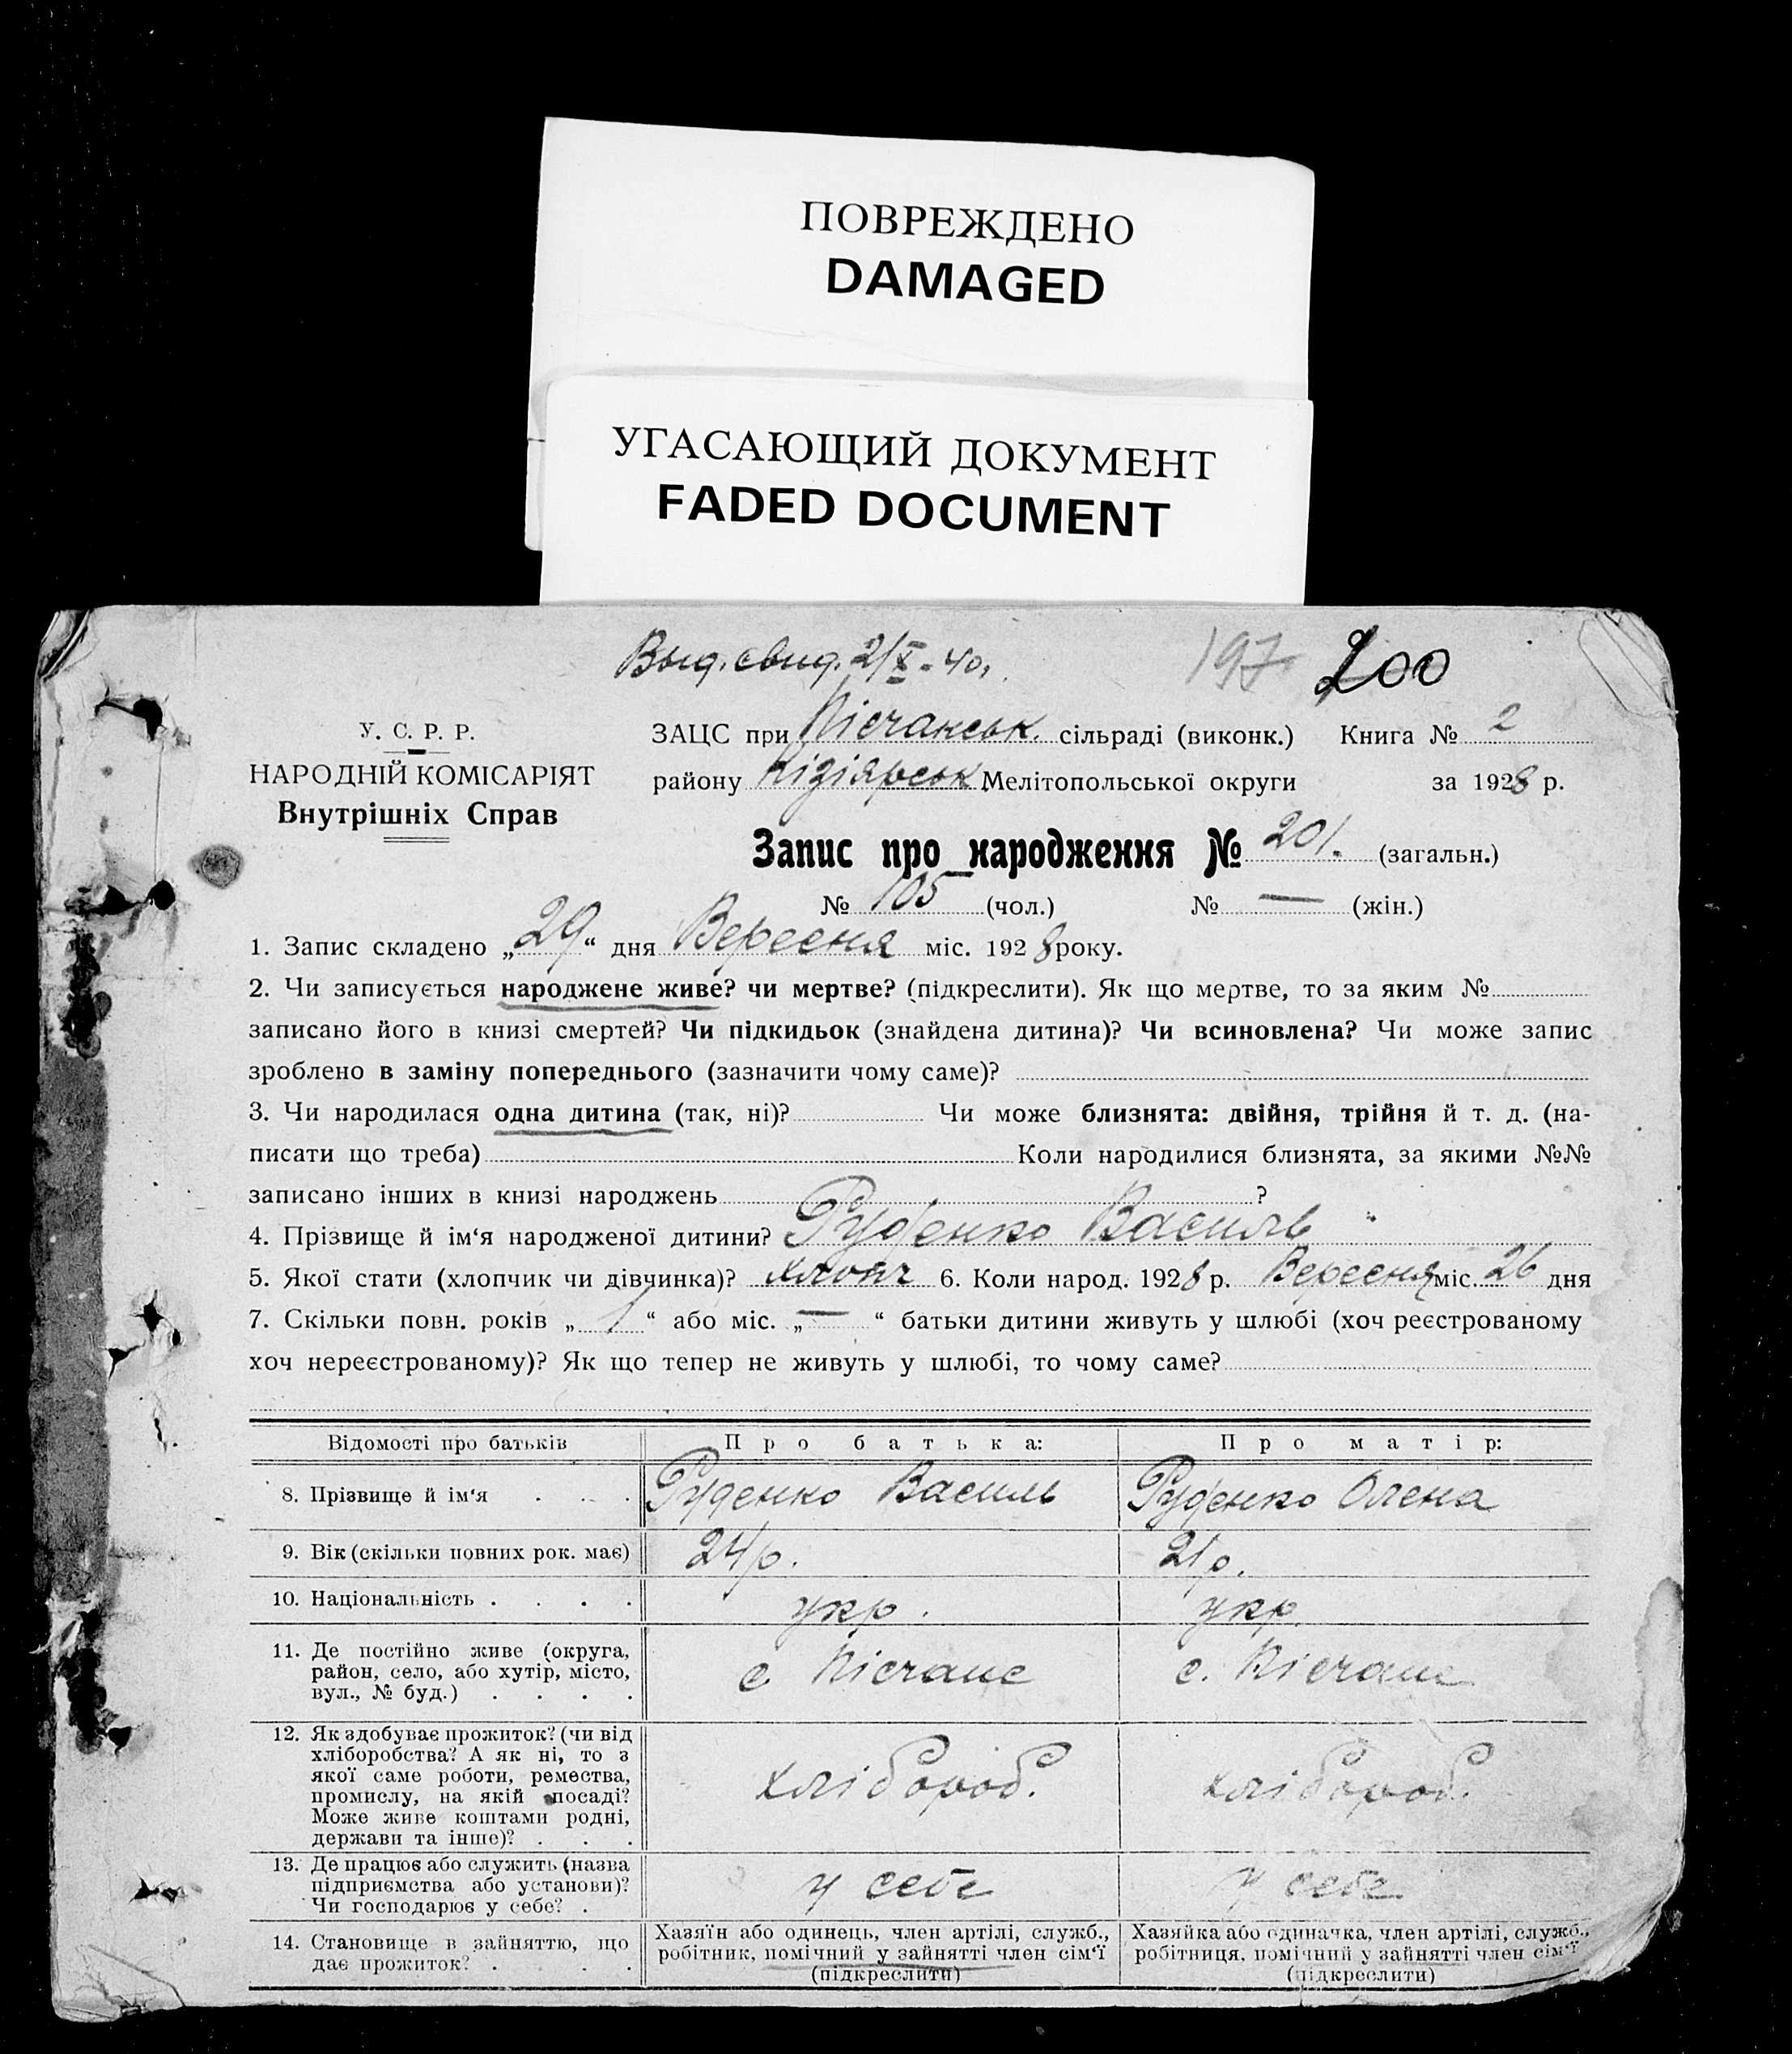 ПОВРЕЖДЕНО
DAMAGED
УГАСАЮЩИЙ ДОКУМЕНТ
FADED DOCUMENT
Выд. свид. 2/X - 40.
197 200
У. С. Р. Р.
НАРОДНІЙ КОМІСАРІЯТ
Внутрішніх Справ
ЗАЦС при Пісчанськ. сільраді (виконк.) Книга № 2
району Кізіярськ Мелітопольської округи за 1928 р.
Запис про народження № 201. (загальн.)
№ 105 (чол.) № — (жін.)
1. Запис складено „29“ дня Вересня міс. 1928 року.
2. Чи записується народжене живе? чи мертве? (підкреслити). Як що мертве, то за яким №
записано його в книзі смертей? Чи підкидьок (знайдена дитина)? Чи всиновлена? Чи може запис
зроблено в заміну попереднього (зазначити чому саме)?
3. Чи народилася одна дитина (так, ні)? Чи може близнята: двійня, трійня й т. д. (на-
писати що треба) Коли народилися близнята, за якими №№
записано інших в книзі народжень ?
4. Прізвище й ім‘я народженої дитини? Руденко Василь
5. Якої стати (хлопчик чи дівчинка)? хлопч 6. Коли народ. 1928 р. Вересня міс. 26 дня
7. Скільки повн. років „ 1 “ або міс. „ — “ батьки дитини живуть у шлюбі (хоч реєстрованому
хоч нереєстрованому)? Як що тепер не живуть у шлюбі, то чому саме?
Відомості про батьків Про батька: Про матір:
8. Прізвище й ім‘я Руденко Василь Руденко Олена
9. Вік (скільки повних рок. має) 24 р. 21 р.
10. Національність укр. укр.
11. Де постійно живе (округа,
район, село, або хутір, місто,
вул., № буд.) с. Пісчане с. Пісчане
12. Як здобуває прожиток? (чи від
хліборобства? А як ні, то з
якої саме роботи, ремества,
промислу, на якій посаді?
Може живе коштами родні,
держави та інше)? хлібороб. хлібороб.
13. Де працює або служить (назва
підприємства або установи)?
Чи господарює у себе? у себе у себе
14. Становище в зайняттю, що
дає прожиток?
Хазяїн або одинець, член артілі, служб.,
робітник, помічний у зайнятті член сім‘ї
(підкреслити)
Хазяйка або одиначка, член артілі, служб.,
робітниця, помічний у зайнятті член сім‘ї
(підкреслити)